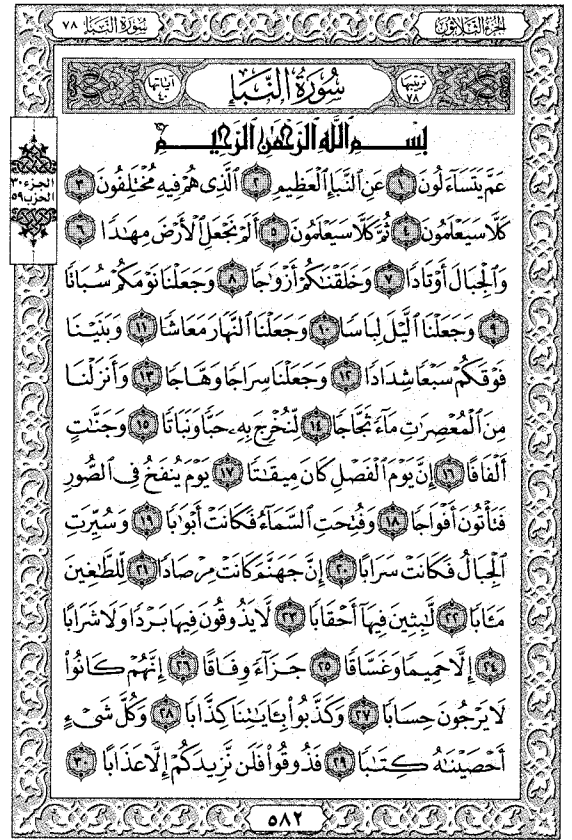 سُورَةُ النَّبَإِ ٧٨
الجُزْءُ الثَّلَاثُونَ
ترتيبها ٧٨
سُورَةُ النَّبَإِ
آياتها ٤٠
بِسْمِ اللَّهِ الرَّحْمَٰنِ الرَّحِيمِ
الجزء ٣٠
الحزب ٥٩
عَمَّ يَتَسَآءَلُونَ ١ عَنِ ٱلنَّبَإِ ٱلْعَظِيمِ ٢ ٱلَّذِى هُمْ فِيهِ مُخْتَلِفُونَ ٣
كَلَّا سَيَعْلَمُونَ ٤ ثُمَّ كَلَّا سَيَعْلَمُونَ ٥ أَلَمْ نَجْعَلِ ٱلْأَرْضَ مِهَٰدًا ٦
وَٱلْجِبَالَ أَوْتَادًا ٧ وَخَلَقْنَٰكُمْ أَزْوَٰجًا ٨ وَجَعَلْنَا نَوْمَكُمْ سُبَاتًا
٩ وَجَعَلْنَا ٱلَّيْلَ لِبَاسًا ١٠ وَجَعَلْنَا ٱلنَّهَارَ مَعَاشًا ١١ وَبَنَيْنَا
فَوْقَكُمْ سَبْعًا شِدَادًا ١٢ وَجَعَلْنَا سِرَاجًا وَهَّاجًا ١٣ وَأَنزَلْنَا
مِنَ ٱلْمُعْصِرَٰتِ مَآءً ثَجَّاجًا ١٤ لِّنُخْرِجَ بِهِۦ حَبًّا وَنَبَاتًا ١٥ وَجَنَّٰتٍ
أَلْفَافًا ١٦ إِنَّ يَوْمَ ٱلْفَصْلِ كَانَ مِيقَٰتًا ١٧ يَوْمَ يُنفَخُ فِى ٱلصُّورِ
فَتَأْتُونَ أَفْوَاجًا ١٨ وَفُتِحَتِ ٱلسَّمَآءُ فَكَانَتْ أَبْوَٰبًا ١٩ وَسُيِّرَتِ
ٱلْجِبَالُ فَكَانَتْ سَرَابًا ٢٠ إِنَّ جَهَنَّمَ كَانَتْ مِرْصَادًا ٢١ لِّلطَّٰغِينَ
مَـَٔابًا ٢٢ لَّٰبِثِينَ فِيهَآ أَحْقَابًا ٢٣ لَّا يَذُوقُونَ فِيهَا بَرْدًا وَلَا شَرَابًا
٢٤ إِلَّا حَمِيمًا وَغَسَّاقًا ٢٥ جَزَآءً وِفَاقًا ٢٦ إِنَّهُمْ كَانُوا۟
لَا يَرْجُونَ حِسَابًا ٢٧ وَكَذَّبُوا۟ بِـَٔايَٰتِنَا كِذَّابًا ٢٨ وَكُلَّ شَىْءٍ
أَحْصَيْنَٰهُ كِتَٰبًا ٢٩ فَذُوقُوا۟ فَلَن نَّزِيدَكُمْ إِلَّا عَذَابًا ٣٠
٥٨٢